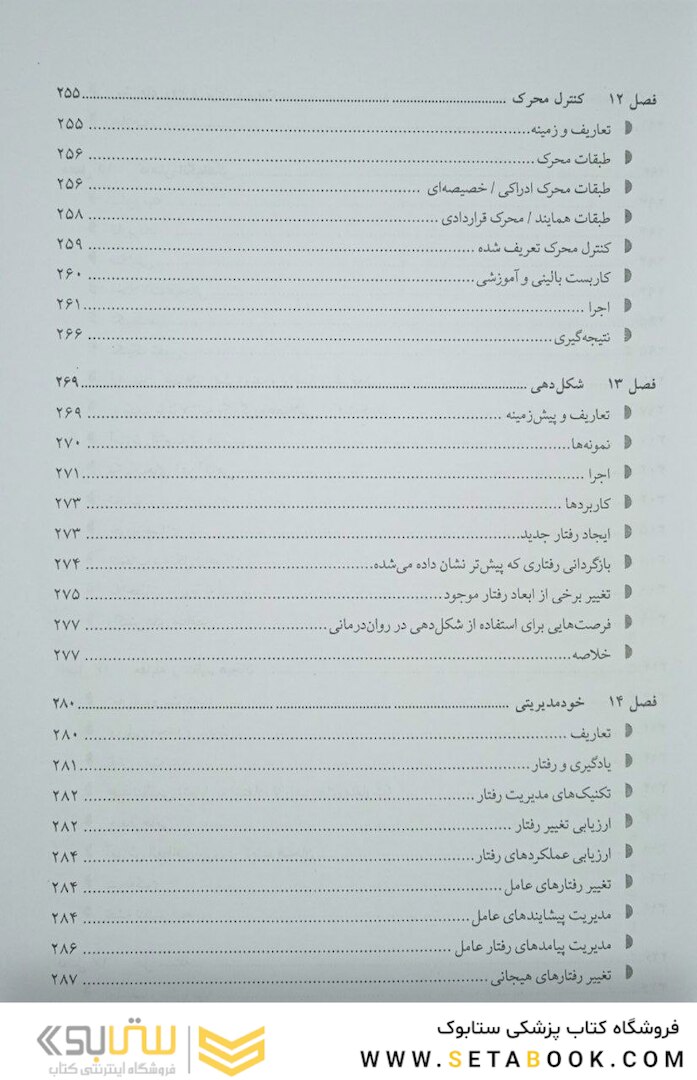 فصل ۱۲ کنترل محرک ........ ۲۵۵
تعاریف و زمینه ........ ۲۵۵
طبقات محرک ........ ۲۵۶
طبقات محرک ادراکی / خصیصه‌ای ........ ۲۵۶
طبقات همایند / محرک قراردادی ........ ۲۵۸
کنترل محرک تعریف شده ........ ۲۵۹
کاربست بالینی و آموزشی ........ ۲۶۰
اجرا ........ ۲۶۱
نتیجه‌گیری ........ ۲۶۶
فصل ۱۳ شکل‌دهی ........ ۲۶۹
تعاریف و پیش‌زمینه ........ ۲۶۹
نمونه‌ها ........ ۲۷۰
اجرا ........ ۲۷۱
کاربردها ........ ۲۷۳
ایجاد رفتار جدید ........ ۲۷۳
بازگردانی رفتاری که پیش‌تر نشان داده می‌شده ........ ۲۷۴
تغییر برخی از ابعاد رفتار موجود ........ ۲۷۵
فرصت‌هایی برای استفاده از شکل‌دهی در روان‌درمانی ........ ۲۷۷
خلاصه ........ ۲۷۷
فصل ۱۴ خودمدیریتی ........ ۲۸۰
تعاریف ........ ۲۸۰
یادگیری و رفتار ........ ۲۸۱
تکنیک‌های مدیریت رفتار ........ ۲۸۲
ارزیابی تغییر رفتار ........ ۲۸۲
ارزیابی عملکردهای رفتار ........ ۲۸۴
تغییر رفتارهای عامل ........ ۲۸۴
مدیریت پیشایندهای عامل ........ ۲۸۴
مدیریت پیامدهای رفتار عامل ........ ۲۸۶
تغییر رفتارهای هیجانی ........ ۲۸۷
فروشگاه کتاب پزشکی ستابوک
WWW.SETABOOK.COM
ستابوک
فروشگاه اینترنتی کتاب